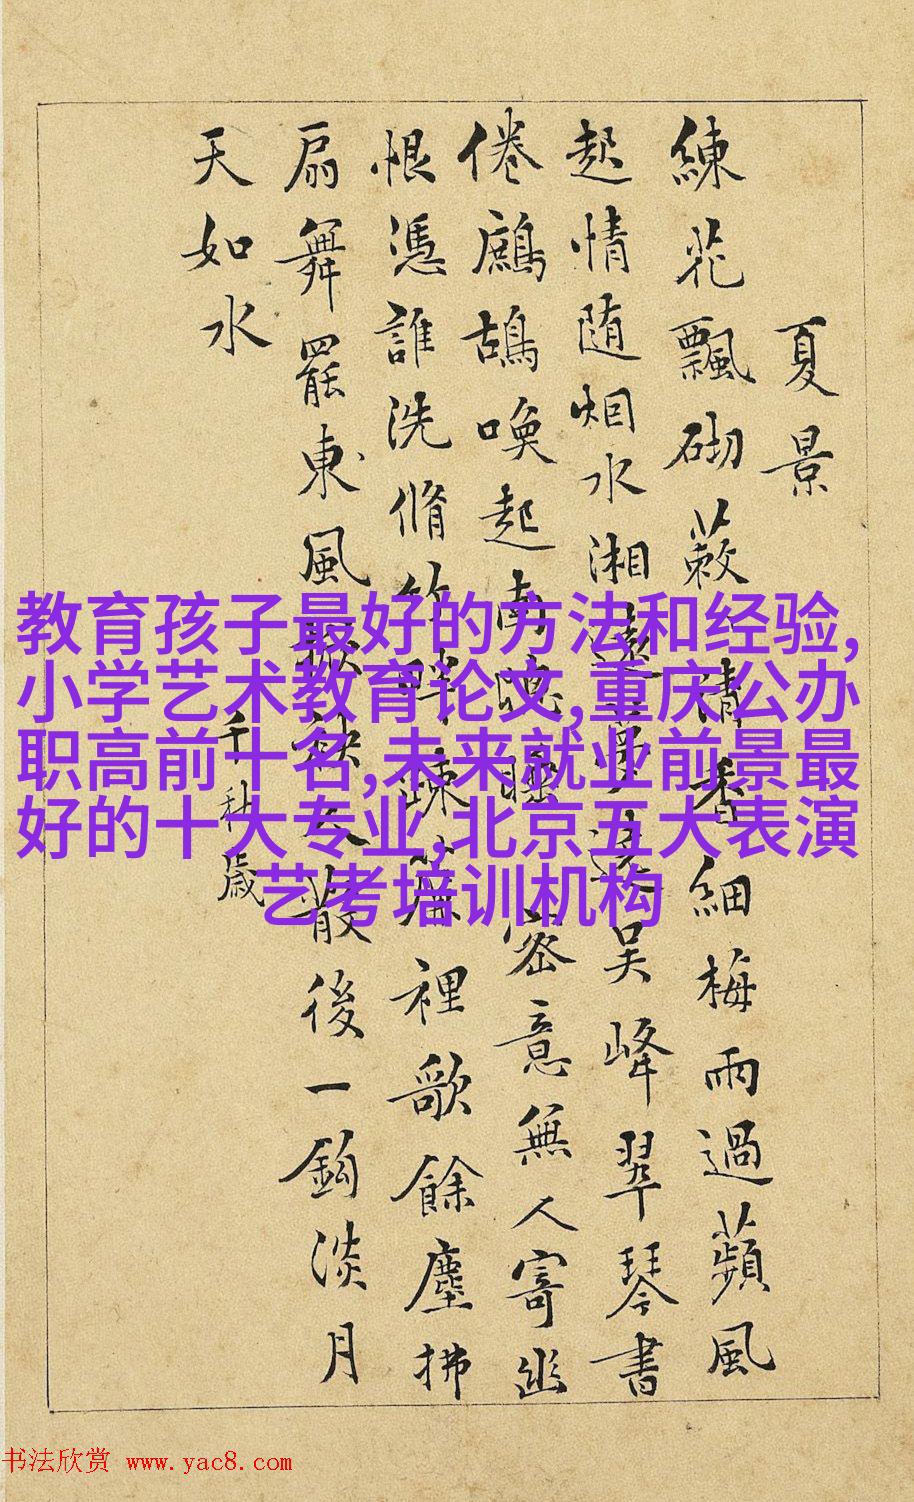 夏景
練花飄砌蔌清香細梅雨過蘋風
起情随烟水湘遠夢遶吳峰翠琴書
倦鷓鴣喚起南牕睡密意無人寄幽
恨憑誰洗脩竹畔疎簾裡歌餘塵拂
扇舞罷東風掀袂人散後一鈎淡月
天如水
千秋歲
教育孩子最好的方法和经验,
小学艺术教育论文,重庆公办
职高前十名,未来就业前景最
好的十大专业,北京五大表演
艺考培训机构
书法欣赏 www.yac8.com